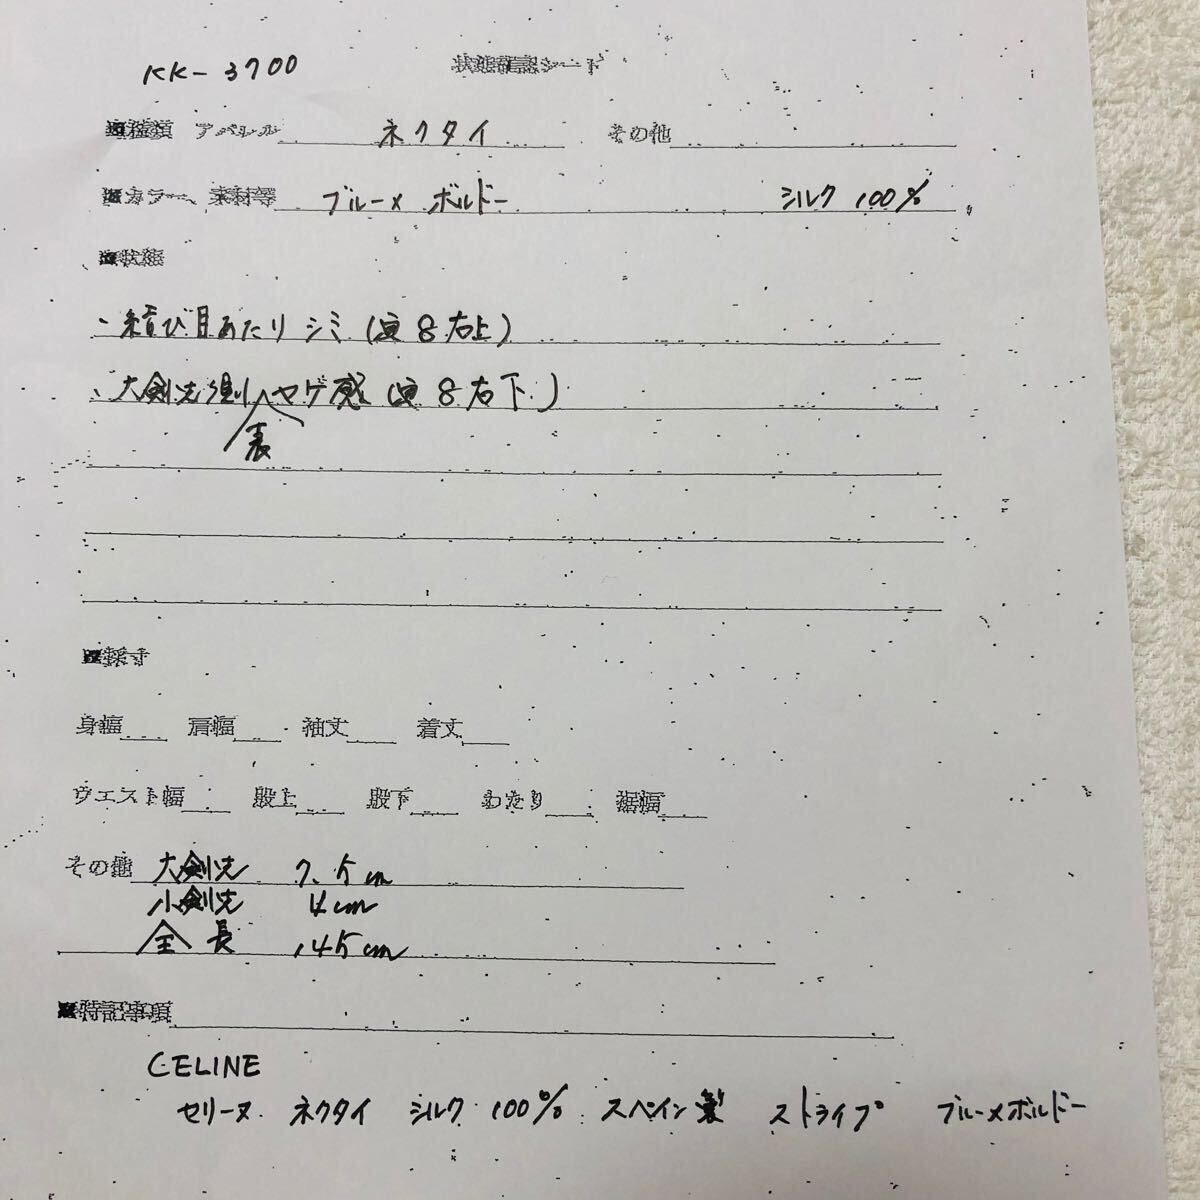 KK-3700 状態確認シート
■種類 アパレル ネクタイ その他
■カラー、素材等 ブルー×ボルドー シルク 100%
■状態
・結び目あたり シミ(画8右上)
・大剣先側表ヤケ感(画8右下)
■採寸
身幅 肩幅 袖丈 着丈
ウエスト幅 股上 股下 わたり 裾幅
その他 大剣先 7.5cm
小剣先 4cm
全長 145cm
■特記事項
CELINE
セリーヌ ネクタイ シルク 100% スペイン製 ストライプ ブルー×ボルドー